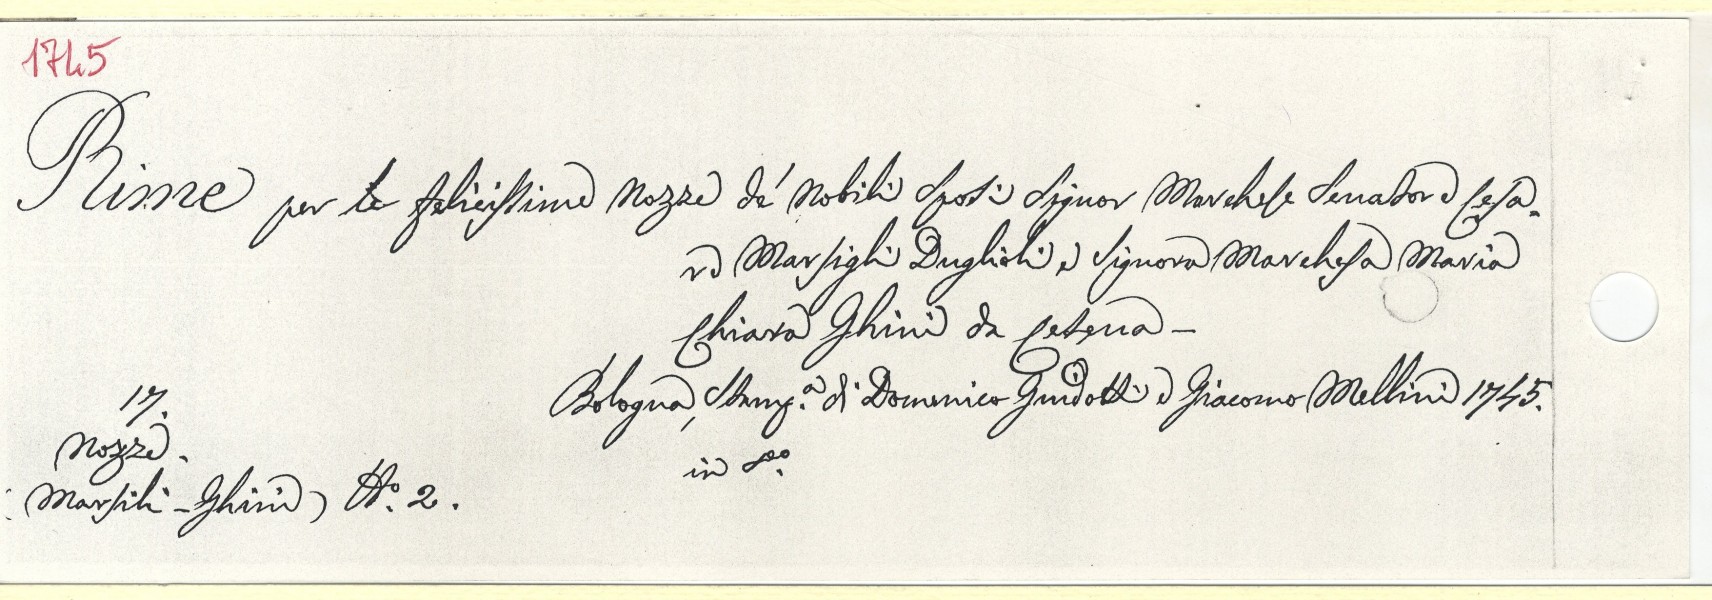 1745
Rime per le felicissime Nozze dé Nobili Sposi Signor Marchese Senatore Cesa-
re Marsigli Duglioli, e Signora Marchesa Maria
Chiara Ghini da Cesena —
Bologna, Stamp.ª di Domenico Guidotti e Giacomo Mellini 1745.
in 8.º
17.
Nozze.
Marsili - Ghini) N.º 2.